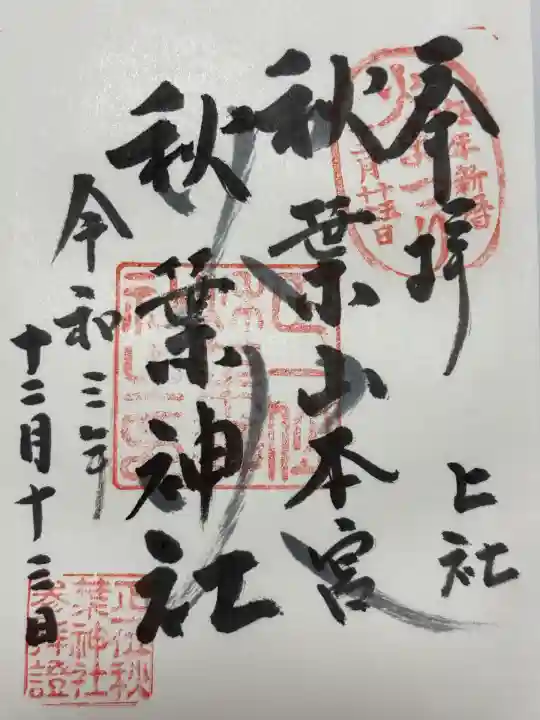 奉拝
上社
秋葉山本宮
秋葉神社
令和三年
十二月十二日
正一位秋
葉神社
参拝證